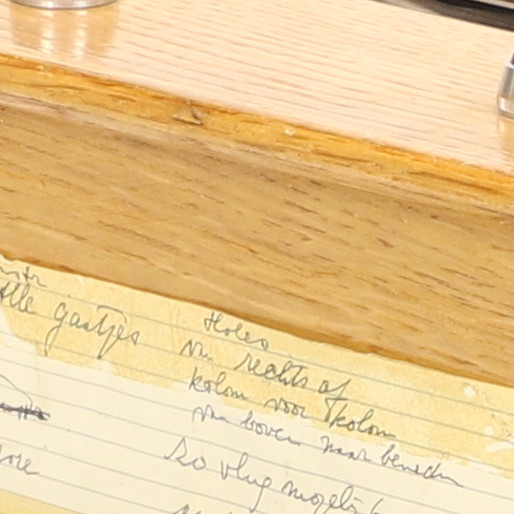 alle gaatjes
Holes
van rechts af
kolom voor kolom
van boven naar beneden
zo vlug mogelijk